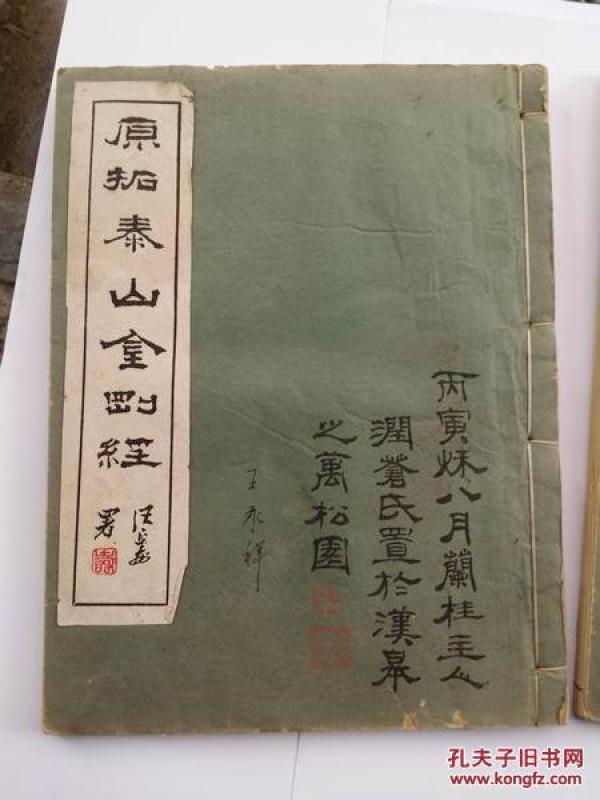 原拓泰山金刚經
署
丙寅秌八月蘭桂主人
潤蒼氏置於漢皋
之萬松園
王永祥
孔夫子旧书网
www.kongfz.com